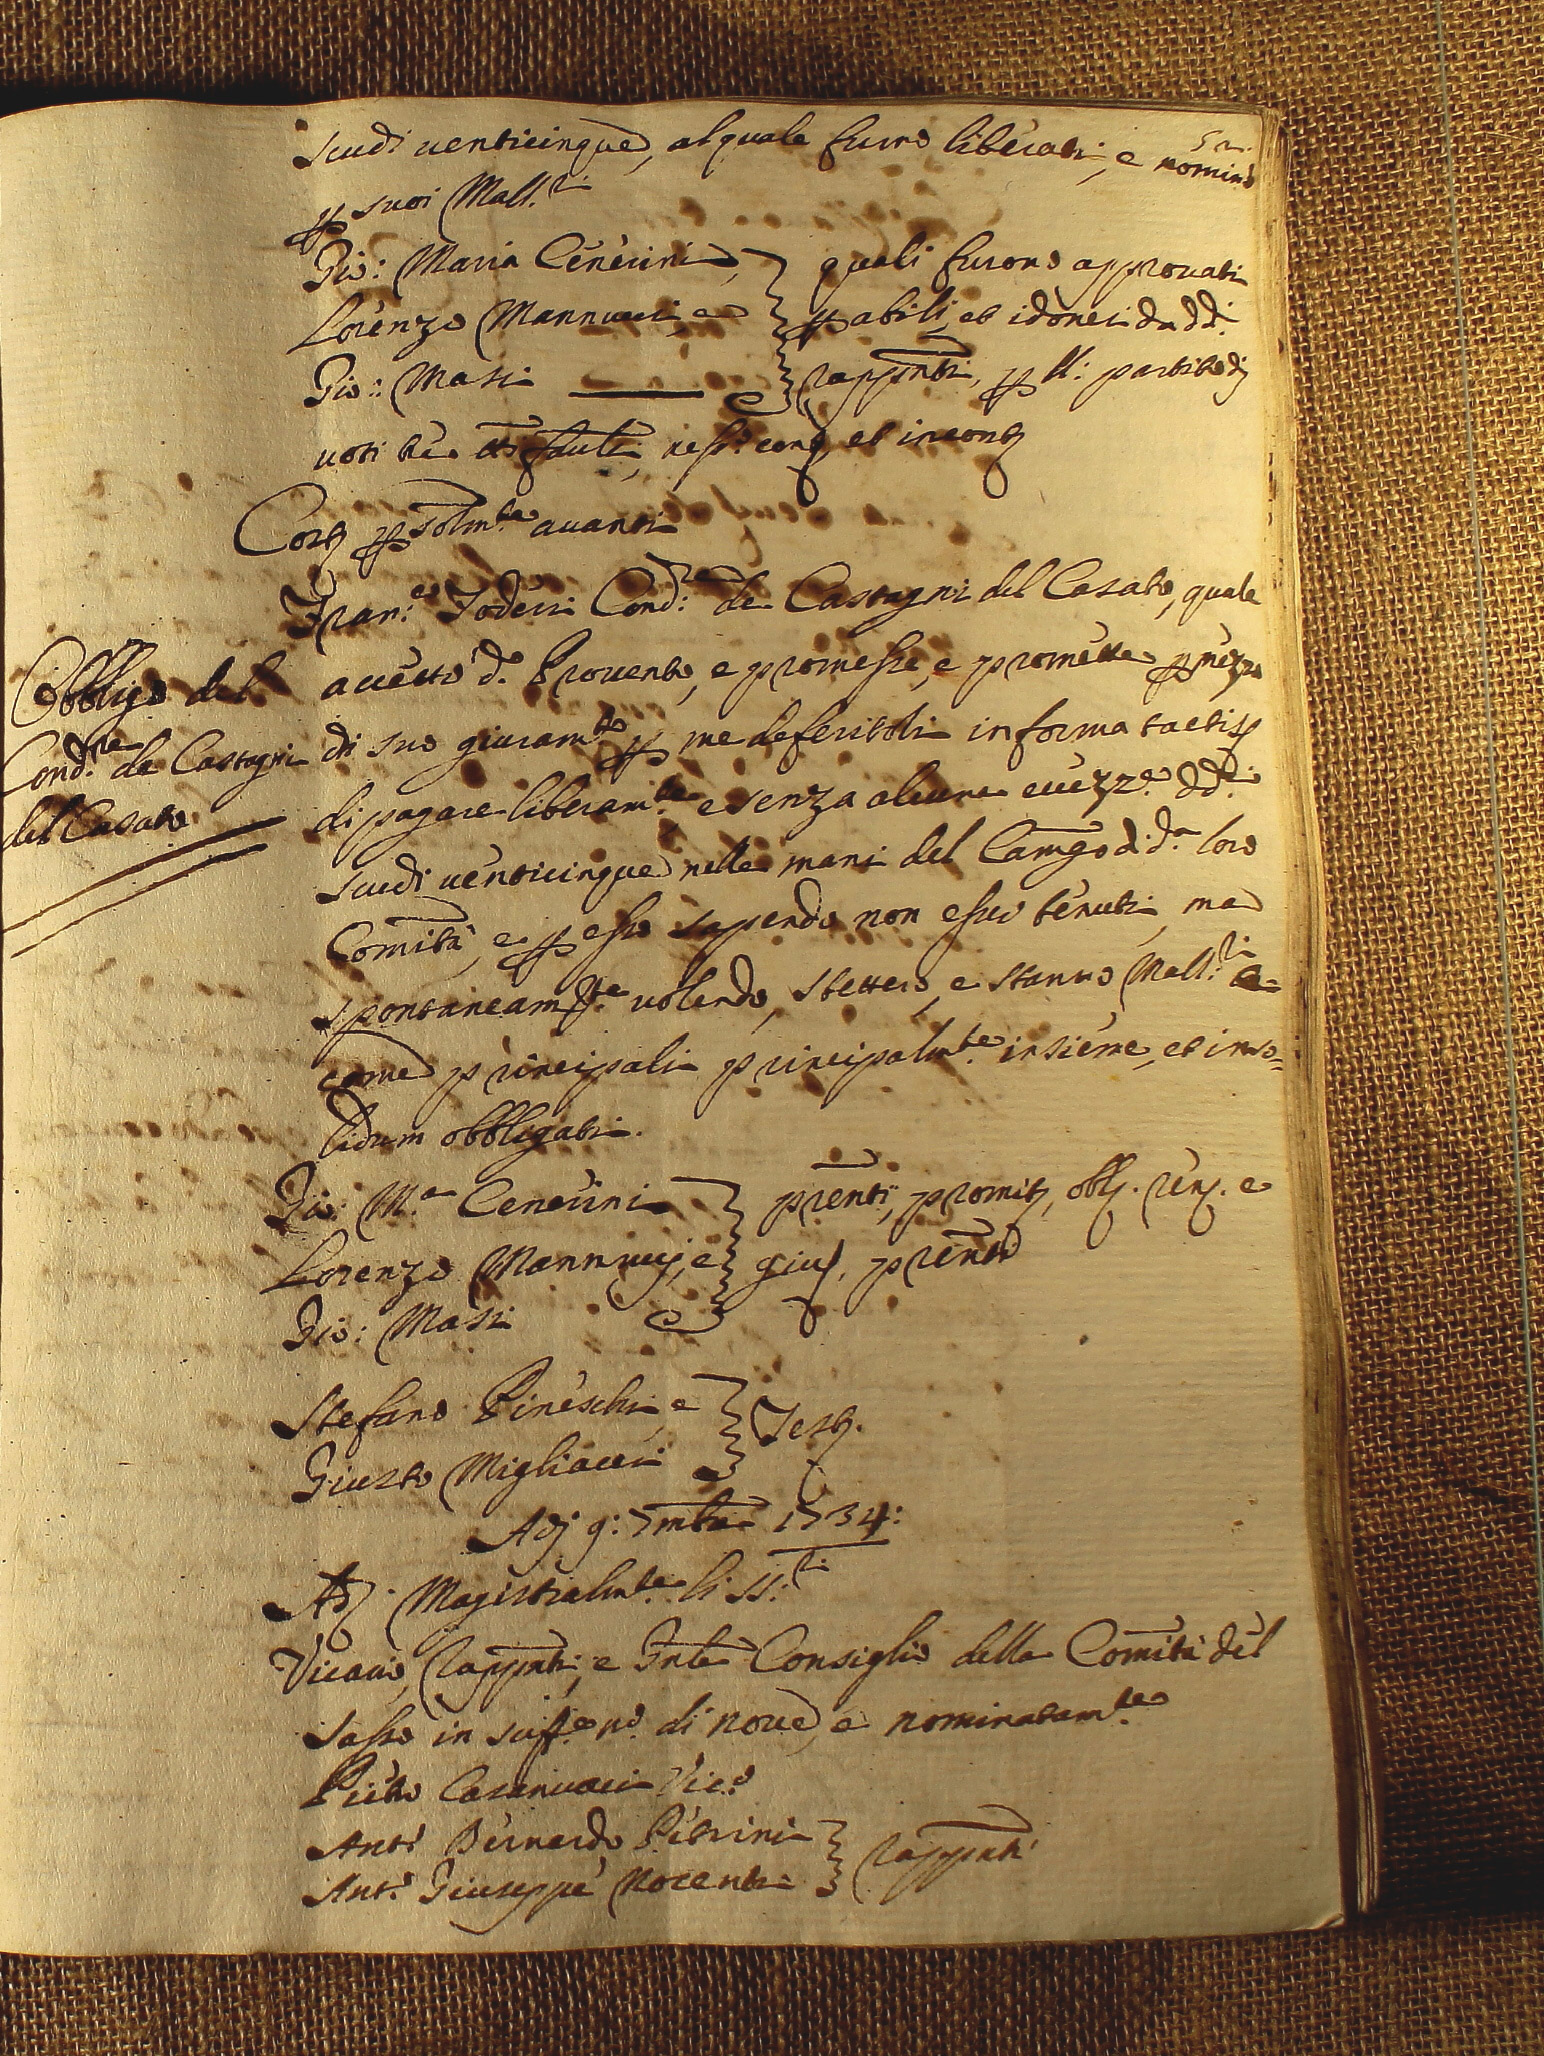 52.
scudi venticinque, al quale furno liberati, e nominò
p suoi Mall.ri
Gio: Maria Cenerini,
Lorenzo Mannucci, e
Gio: Masi
quali furono approvati
p abili, et idonei da dd.
rappnti, p ll: partito di
voti tre tti favli, ness.o cong, et incong
Cong psolmte avanti
Fran.co Foderi Cond.re de Castagni del Casato, quale
accettò d.o Provento, e promesse, e promette p mezzo
di suo giuramto p me deferitoli in forma tactis
di pagare liberamte e senza alcune eccezz.e dd.i
scudi venticinque nelle mani del Camgo d. d.a loro
Comità, e p esso sapendo non esser tenuti, ma
spontaneamte volendo, stettero, e stanno Mall.ri e
come principali principalmte insieme, et inso=
lidum obbligati.
Obbligo del
Cond.re de Castagni
del Casato
Gio: M.a Cenerini
Lorenzo Mannucci, e
Gio: Masi
prenti, promis, obb. ren. e
giu. prente
Stefano Pineschi, e
Giusto Migliacci
Test.
Adj 9: 7mbre 1734:
Ad. Magistralmte li SS.ri
Vicario, rappnti, e Intº Consiglio della Comità del
Sasso in suff.e n.o di nove, e nominatamte
Pietro Casanuovi Vic.o
Ant.o Bernardo Petrini
Ant.o Giuseppe Nocenti
rappnti